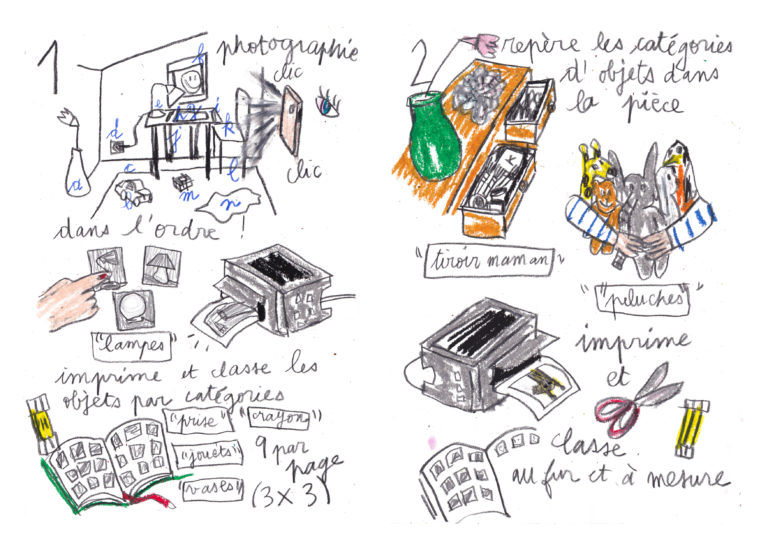 1
photographie
clic
clic
a
b
c
d
e
h
g
i
j
k
l
m
n
dans l'ordre !
"lampes"
imprime et classe les
objets par catégories
"prise"
"crayon"
"jouets"
"vases"
9 par
page
(3 x 3)
2
repère les catégories
d'objets dans
la pièce
"tiroir maman"
"peluches"
imprime
et
classe
au fur et à mesure